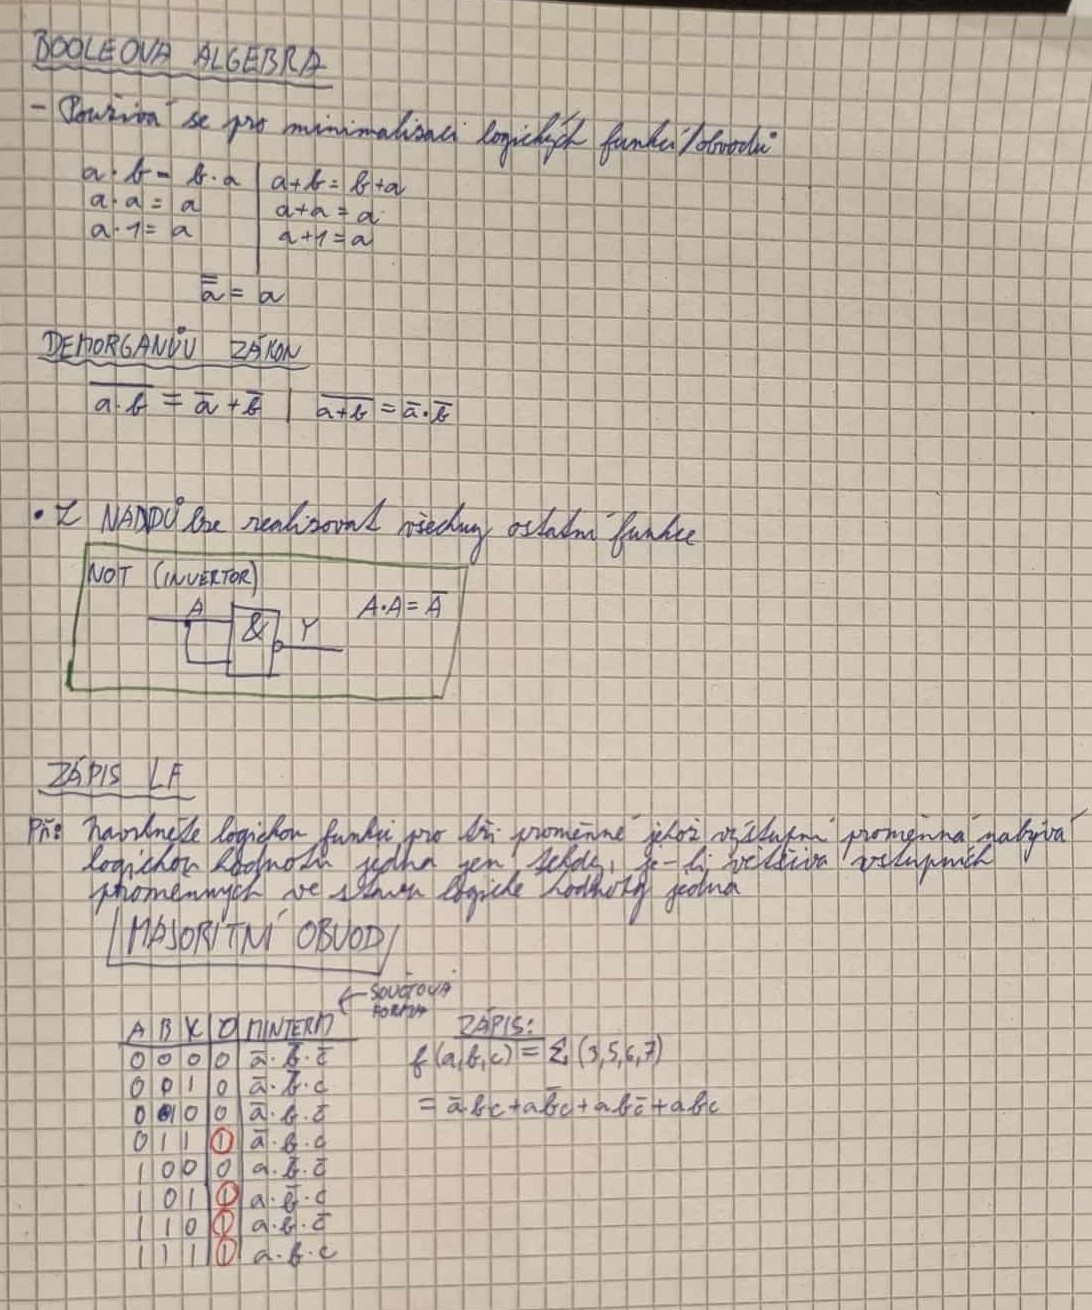 BOOLEOVA ALGEBRA
- Používá se pro minimalisaci logických funkcí/obvodů
a·b = b·a | a+b = b+a
a·a = a | a+a = a
a·1 = a | a+1 = a
a̿ = a
DEMORGANŮV ZÁKON
\overline{a·b} = a̅ + b̅ | \overline{a+b} = a̅·b̅
• Z NANDŮ lze realizovat všechny ostatní funkce
NOT (INVERTOR)
A & Y A·A = A̅
ZÁPIS LF
Př: Navrhněte logickou funkci pro tři proměnné jehož výstupní proměnná nabývá
logickou hodnotu jedna jen tehdy, je-li většina vstupních
proměnných ve stavu logické hodnoty jedna
MAJORITNÍ OBVOD
← SOUČTOVÁ
FORMA
A B C O MINTERM
0 0 0 0 a̅·b̅·c̅
0 0 1 0 a̅·b̅·c
0 1 0 0 a̅·b·c̅
0 1 1 1 a̅·b·c
1 0 0 0 a·b̅·c̅
1 0 1 1 a·b̅·c
1 1 0 1 a·b·c̅
1 1 1 1 a·b·c
ZÁPIS:
f(a,b,c) = Σ (3,5,6,7)
= a̅bc + ab̅c + abc̅ + abc